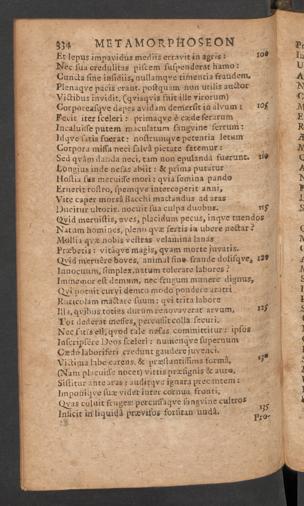 334 METAMORPHOSEON
Et lepus impavidus mediis erravit in agris: 100
Nec sua credulitas piscem suspenderat hamo:
Cuncta sine insidiis, nullamque timentia fraudem,
Plenaque pacis erant. postquam non utilis auctor
Victibus invidit, (quisquis fuit ille virorum)
Corporeasque dapes avidam demersit in alvum: 105
Fecit iter sceleri: primaque è cæde ferarum
Incaluisse putem maculatum sanguine ferrum:
Idque satis fuerat: nostrumque petentia letum
Corpora missa neci salvâ pietate fatemur:
Sed quàm danda neci, tam non epulanda fuerunt. 110
Longius inde nefas abiit: & prima putatur
Hostia sus meruisse mori: quia semina pando
Eruerit rostro, spemque interceperit anni,
Vite caper morsâ Bacchi mactandus ad aras
Ducitur ultoris. nocuit sua culpa duobus. 115
Quid meruistis, oves, placidum pecus, inque tuendos
Natum homines, pleno quæ fertis in ubere nectar?
Mollia quæ nobis vestras velamina lanas
Præbetis: vitâque magis, quam morte juvatis.
Quid meruêre boves, animal sine fraude dolisque, 120
Innocuum, simplex, natum tolerare labores?
Immemor est demum, nec frugum munere dignus,
Qui potuit curvi demto modo pondere aratri
Ruricolam mactare suum: qui trita labore
Illa, quibus toties durum renovaverat arvum, 125
Tot dederat messes, percussit colla securi.
Nec satis est, quod tale nefas committitur: ipsos
Inscripsêre Deos sceleri: numenque supernum
Cæde laboriferi credunt gaudere juvenci.
Victima labe carens, & præstantissima formâ, 130
(Nam placuisse nocet) vittis præsignis & auro,
Sistitur ante aras: auditque ignara precantem:
Imponique suæ videt inter cornua fronti,
Quas coluit fruges: percussaque sanguine cultros
Inficit in liquidâ prævisos forsitan undâ. 135
Pro-